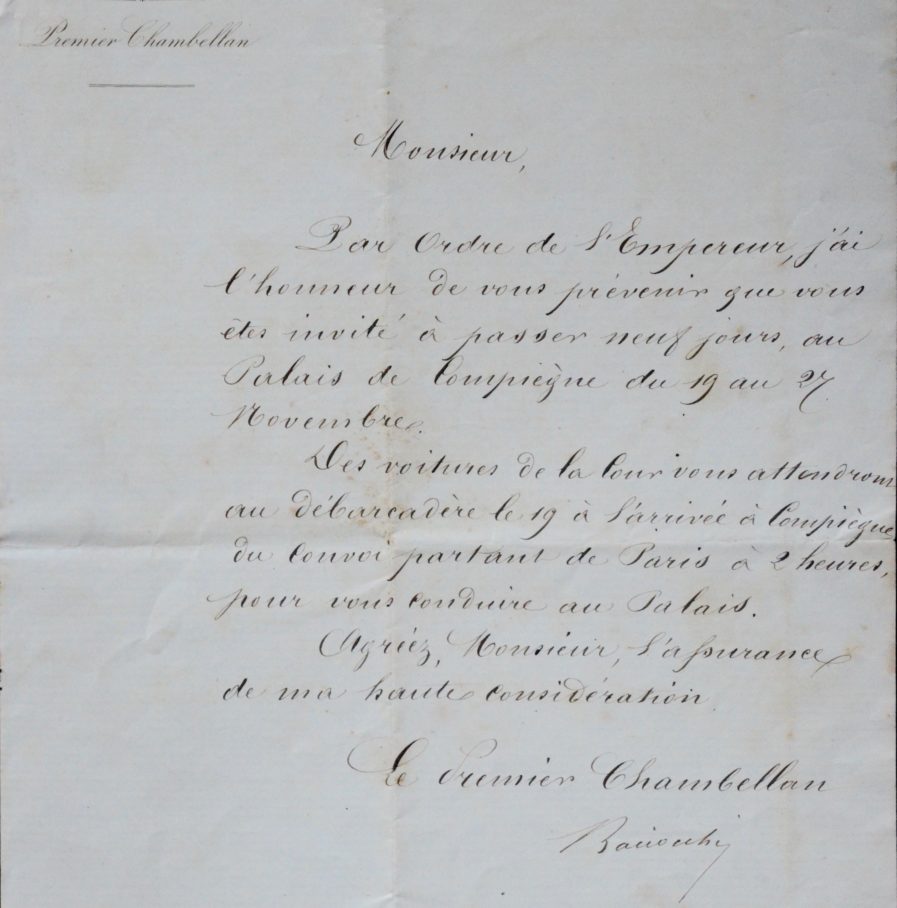 Premier Chambellan
Monsieur,
Par Ordre de l'Empereur, j'ai
l'honneur de vous prévenir que vous
êtes invité à passer neuf jours, au
Palais de Compiègne du 19 au 27
Novembre.
Des voitures de la Cour vous attendront
au débarcadère le 19 à l'arrivée à Compiègne
du Convoi partant de Paris à 2 heures,
pour vous conduire au Palais.
Agréez, Monsieur, l'assurance
de ma haute considération
Le Premier Chambellan
Bacciochi